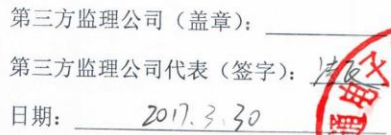 第三方监理公司（盖章）：
第三方监理公司代表（签字）：
日期： 2017.3.30
通电子